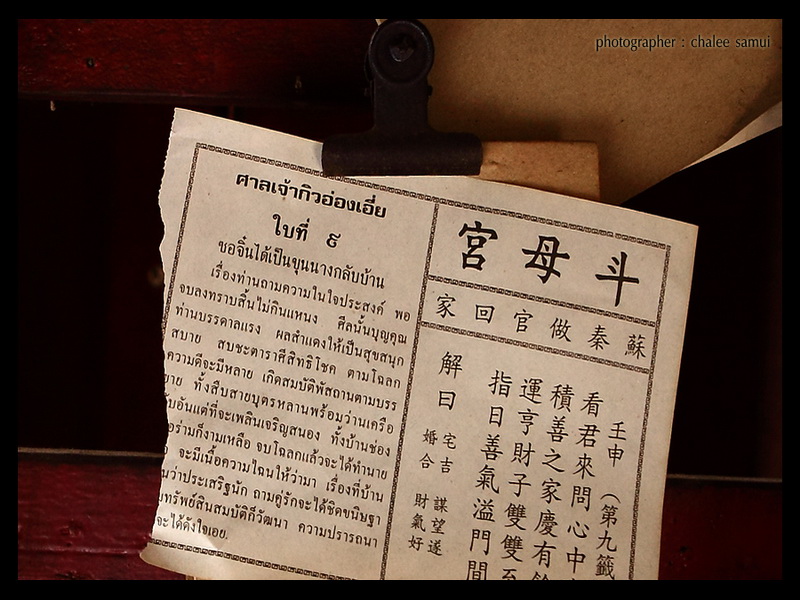 photographer : chalee samui
ศาลเจ้ากิวอ่องเอี่ย
ใบที่ ๙
ซอจิ๋นได้เป็นขุนนางกลับบ้าน
เรื่องท่านถามความในใจประสงค์ พอ
จบลงทราบสิ้นไม่กินแหนง ศีลนั้นบุญคุณ
ท่านบรรดาลแรง ผลสำแดงให้เป็นสุขสนุก
สบาย สบชะตาราศีสิทธิโชค ตามโฉลก
ความดีจะมีหลาย เกิดสมบัติพัสถานตามบรร
ยาย ทั้งสืบสายบุตรหลานพร้อมว่านเครือ
อันแต่ที่จะเพลินเจริญสนอง ทั้งบ้านช่อง
อร่ามก็งามเหลือ จบโฉลกแล้วจะได้ทำนาย
จะมีเนื้อความไฉนให้ว่ามา เรื่องที่บ้าน
นว่าประเสริฐนัก ถามคู่รักจะได้ชิดขนิษฐา
ทรัพย์สินสมบัติก็วัฒนา ความปรารถนา
จะได้ดังใจเอย.
斗母宮
蘇秦做官回家
壬申 (第九籤
看君來問心中
積善之家慶有
運亨財子雙雙
指日善氣溢門間
解曰
宅吉 謀望遂
婚合 財氣好